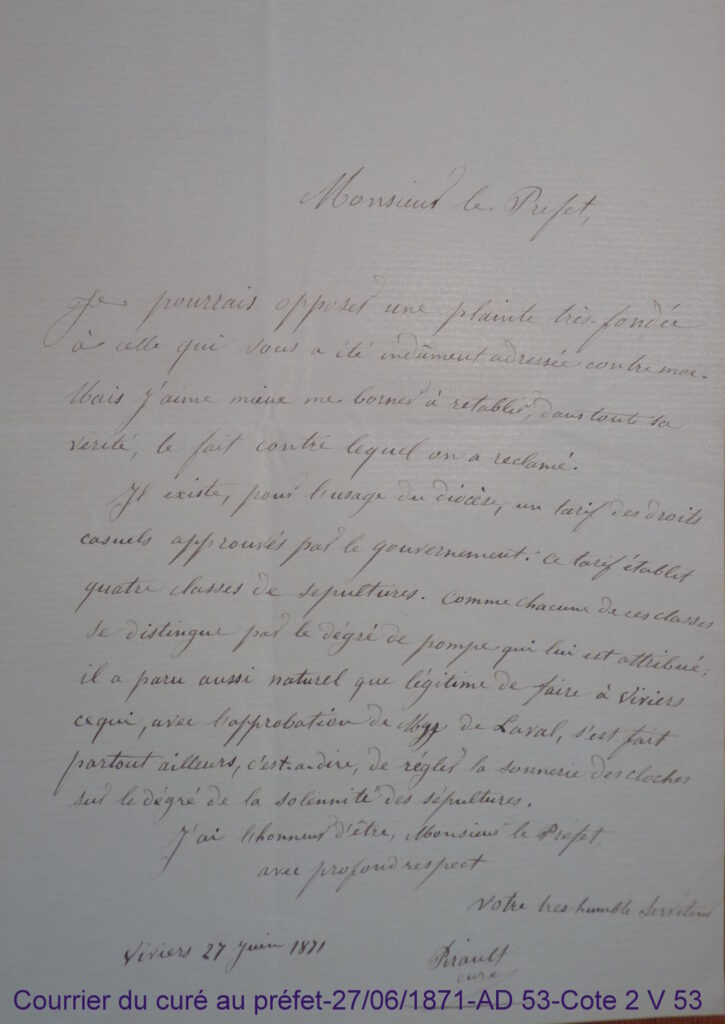 Monsieur le Prefet,
Je pourrais opposer une plainte très-fondée
à celle qui vous a été indûment adressée contre moi.
Mais j'aime mieux me borner à retablir, dans toute sa
vérité, le fait contre lequel on a réclamé.
Il existe, pour l'usage du diocèse, un tarif des droits
casuels approuvés par le gouvernement. Ce tarif établit
quatre classes de sepultures. Comme chacune de ces classes
se distingue par le dégré de pompe qui lui est attribué,
il a paru aussi naturel que légitime de faire à Viviers
ce qui, avec l'approbation de Mgr de Laval, s'est fait
partout ailleurs, c'est-a-dire, de régler la sonnerie des cloches
sur le dégré de la solennité des sépultures.
J'ai l'honneur d'être, Monsieur le Préfet,
avec profond respect
Votre tres-humble Serviteur
Viviers 27 juin 1871
curé
Courrier du curé au préfet-27/06/1871-AD 53-Cote 2 V 53